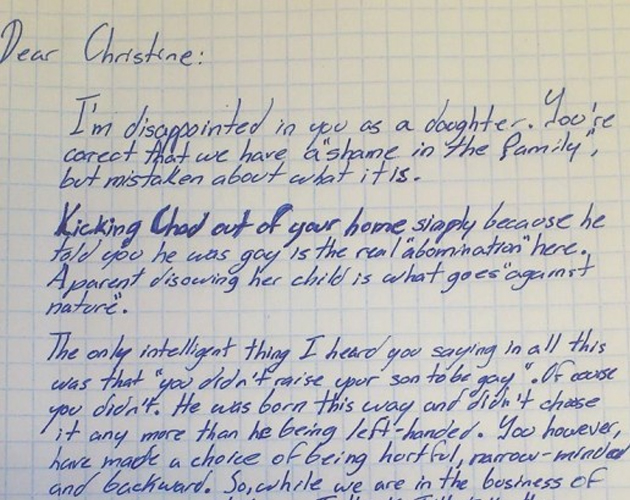 Dear Christine:
I'm disappointed in you as a daughter. You're
corect that we have a "shame in the family",
but mistaken about what it is.
Kicking Chad out of your home simply because he
told you he was gay is the real "abomination" here.
A parent disowing her child is what goes "against
nature".
The only intelligent thing I heard you saying in all this
was that "you didn't raise your son to be gay". Of course
you didn't. He was born this way and didn't choose
it any more than he being left-handed. You however,
have made a choice of being hurtful, narrow-minded
and backward. So, while we are in the business of